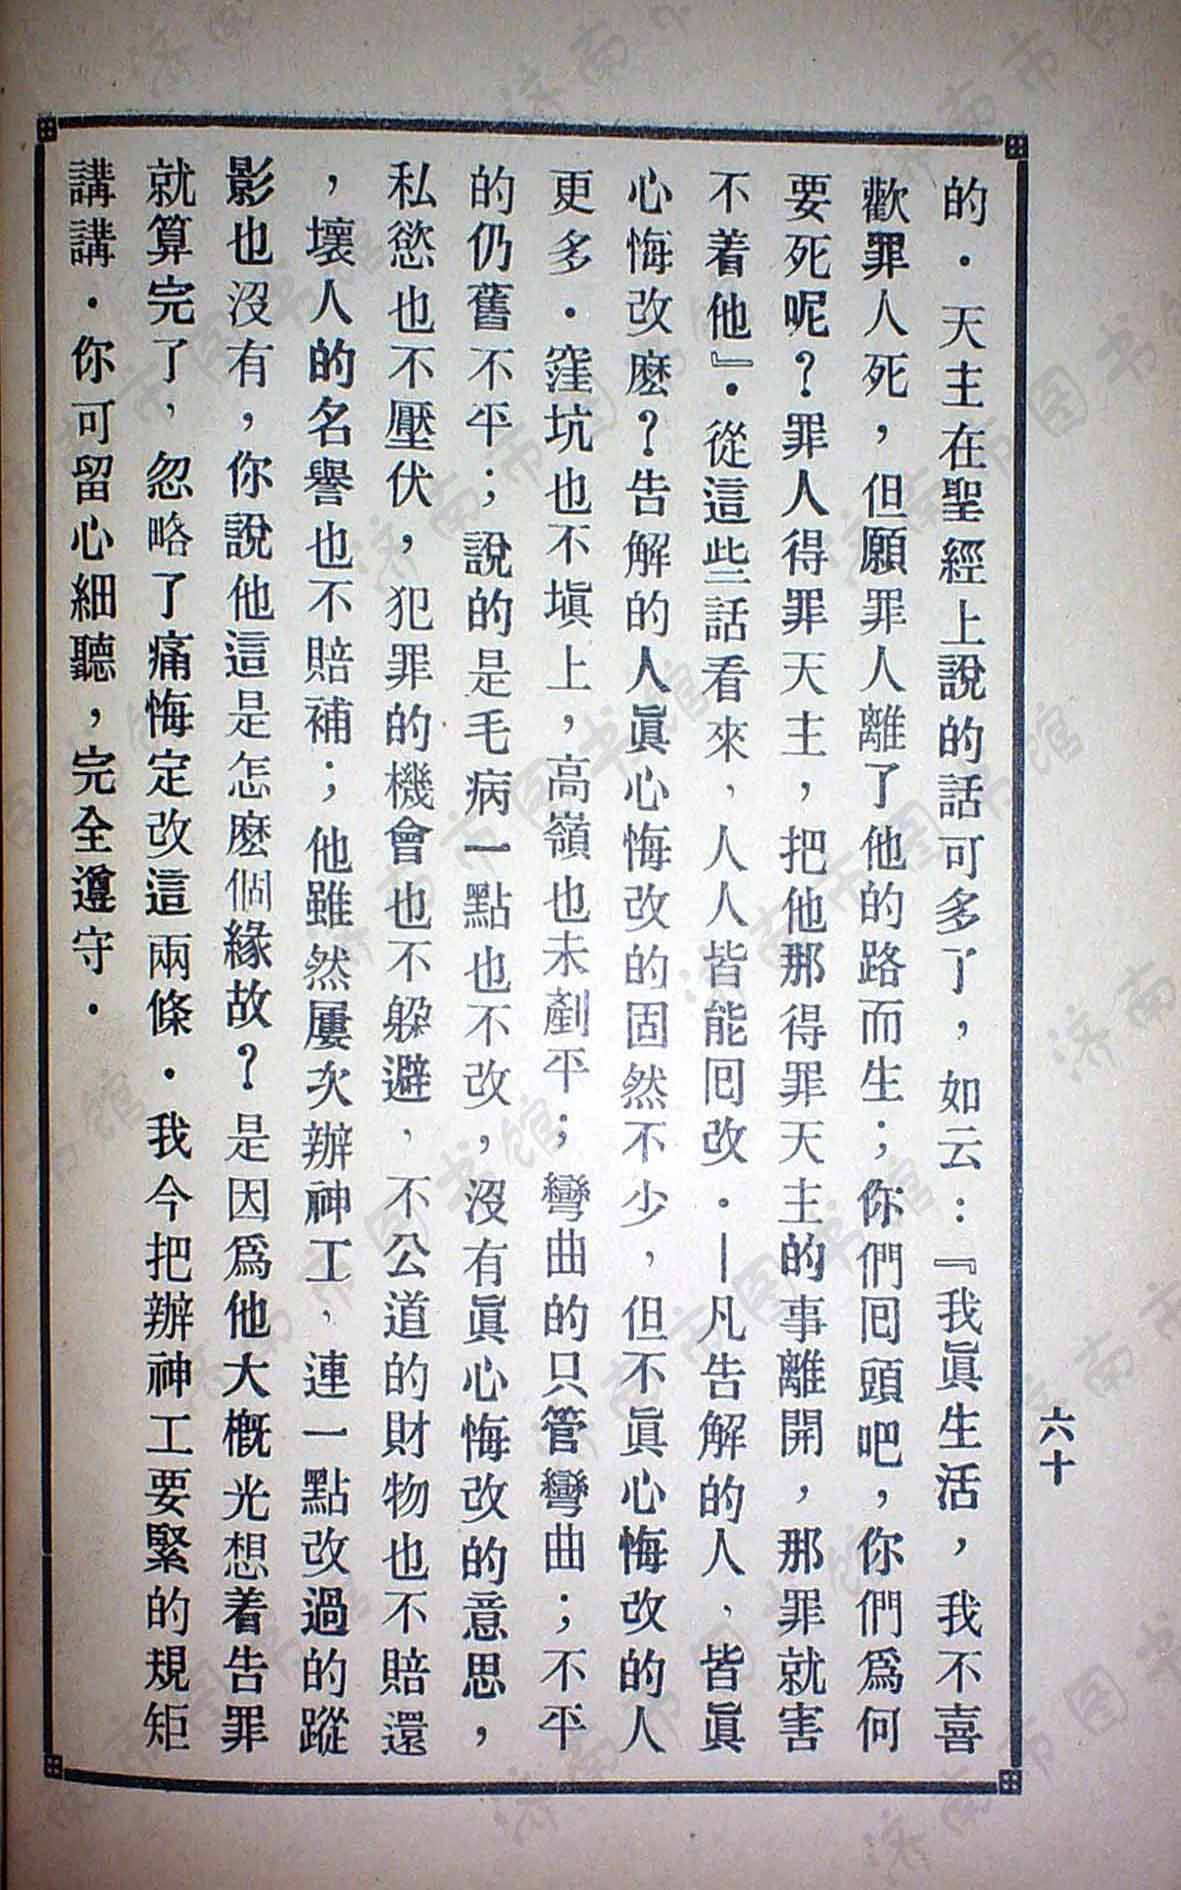 的．天主在聖經上說的話可多了，如云：『我眞生活，我不喜
歡罪人死，但願罪人離了他的路而生；你們囘頭吧，你們爲何
要死呢？罪人得罪天主，把他那得罪天主的事離開，那罪就害
不着他』．從這些話看來，人人皆能囘改．—凡告解的人，皆眞
心悔改麽？告解的人眞心悔改的固然不少，但不眞心悔改的人
更多．窪坑也不塡上，高嶺也未剷平；彎曲的只管彎曲；不平
的仍舊不平；說的是毛病一點也不改，沒有眞心悔改的意思，
私慾也不壓伏，犯罪的機會也不躱避，不公道的財物也不賠還
，壞人的名譽也不賠補；他雖然屢次辦神工，連一點改過的蹤
影也沒有，你說他這是怎麽個緣故？是因爲他大槪光想着告罪
就算完了，忽略了痛悔定改這兩條．我今把辦神工要緊的規矩
講講．你可留心細聽，完全遵守．
六十
济南市图书馆